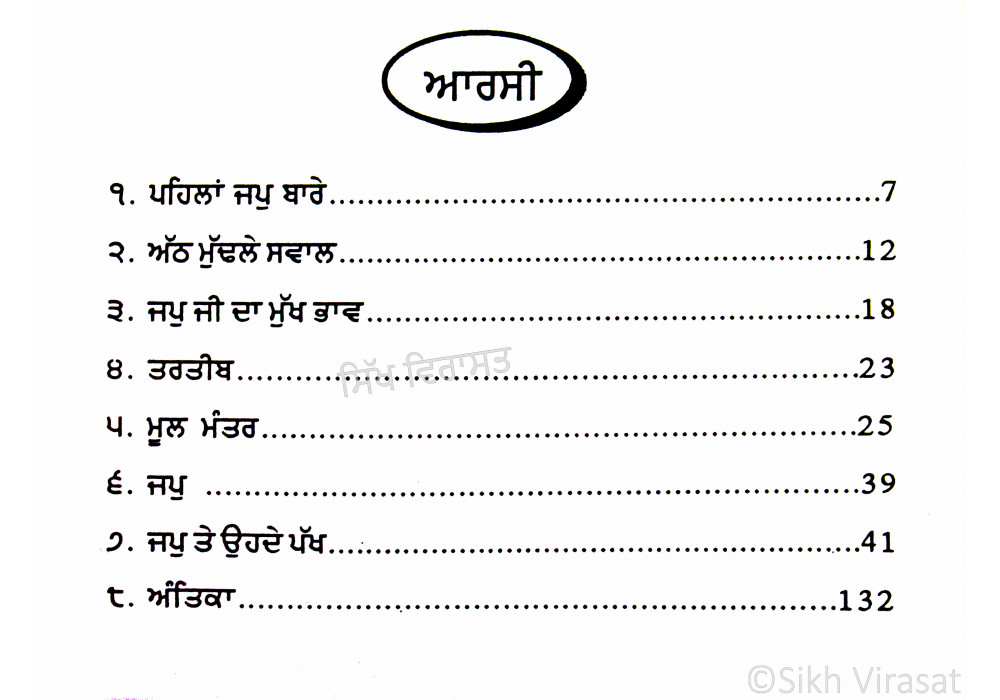 ਆਰਸੀ
੧. ਪਹਿਲਾਂ ਜਪੁ ਬਾਰੇ........................................................7
੨. ਅੱਠ ਮੁੱਢਲੇ ਸਵਾਲ........................................................12
੩. ਜਪੁ ਜੀ ਦਾ ਮੁੱਖ ਭਾਵ........................................................18
੪. ਤਰਤੀਬ........................................................23
ਸਿੱਖ ਵਿਰਾਸਤ
੫. ਮੂਲ ਮੰਤਰ........................................................25
੬. ਜਪੁ ........................................................39
੭. ਜਪੁ ਤੇ ਉਹਦੇ ਪੱਖ........................................................41
੮. ਅੰਤਿਕਾ........................................................132
©Sikh Virasat